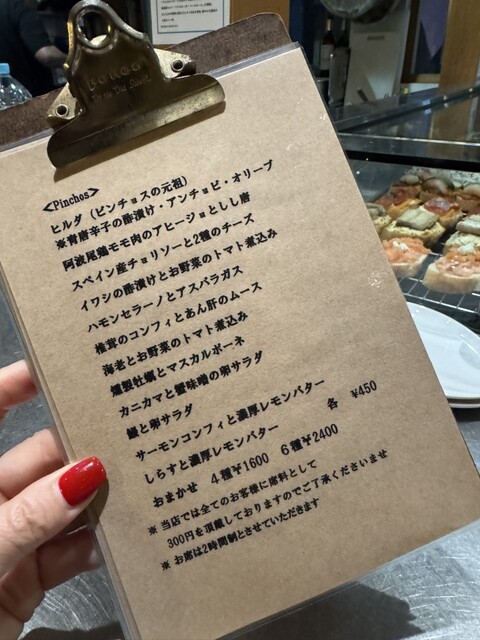 <Pinchos>
ヒルダ（ピンチョスの元祖）
※青唐辛子の酢漬け・アンチョビ・オリーブ
阿波尾鶏モモ肉のアヒージョとしし唐
スペイン産チョリソーと2種のチーズ
イワシの酢漬けとお野菜のトマト煮込み
ハモンセラーノとアスパラガス
椎茸のコンフィとあん肝のムース
海老とお野菜のトマト煮込み
燻製牡蠣とマスカルポーネ
カニカマと蟹味噌の卵サラダ
鰻と卵サラダ
サーモンコンフィと濃厚レモンバター
しらすと濃厚レモンバター 各 ¥450
おまかせ 4種¥1600 6種¥2400
※ 当店では全てのお客様に席料として
300円を頂戴しておりますのでご了承くださいませ
※ お席は2時間制とさせていただきます